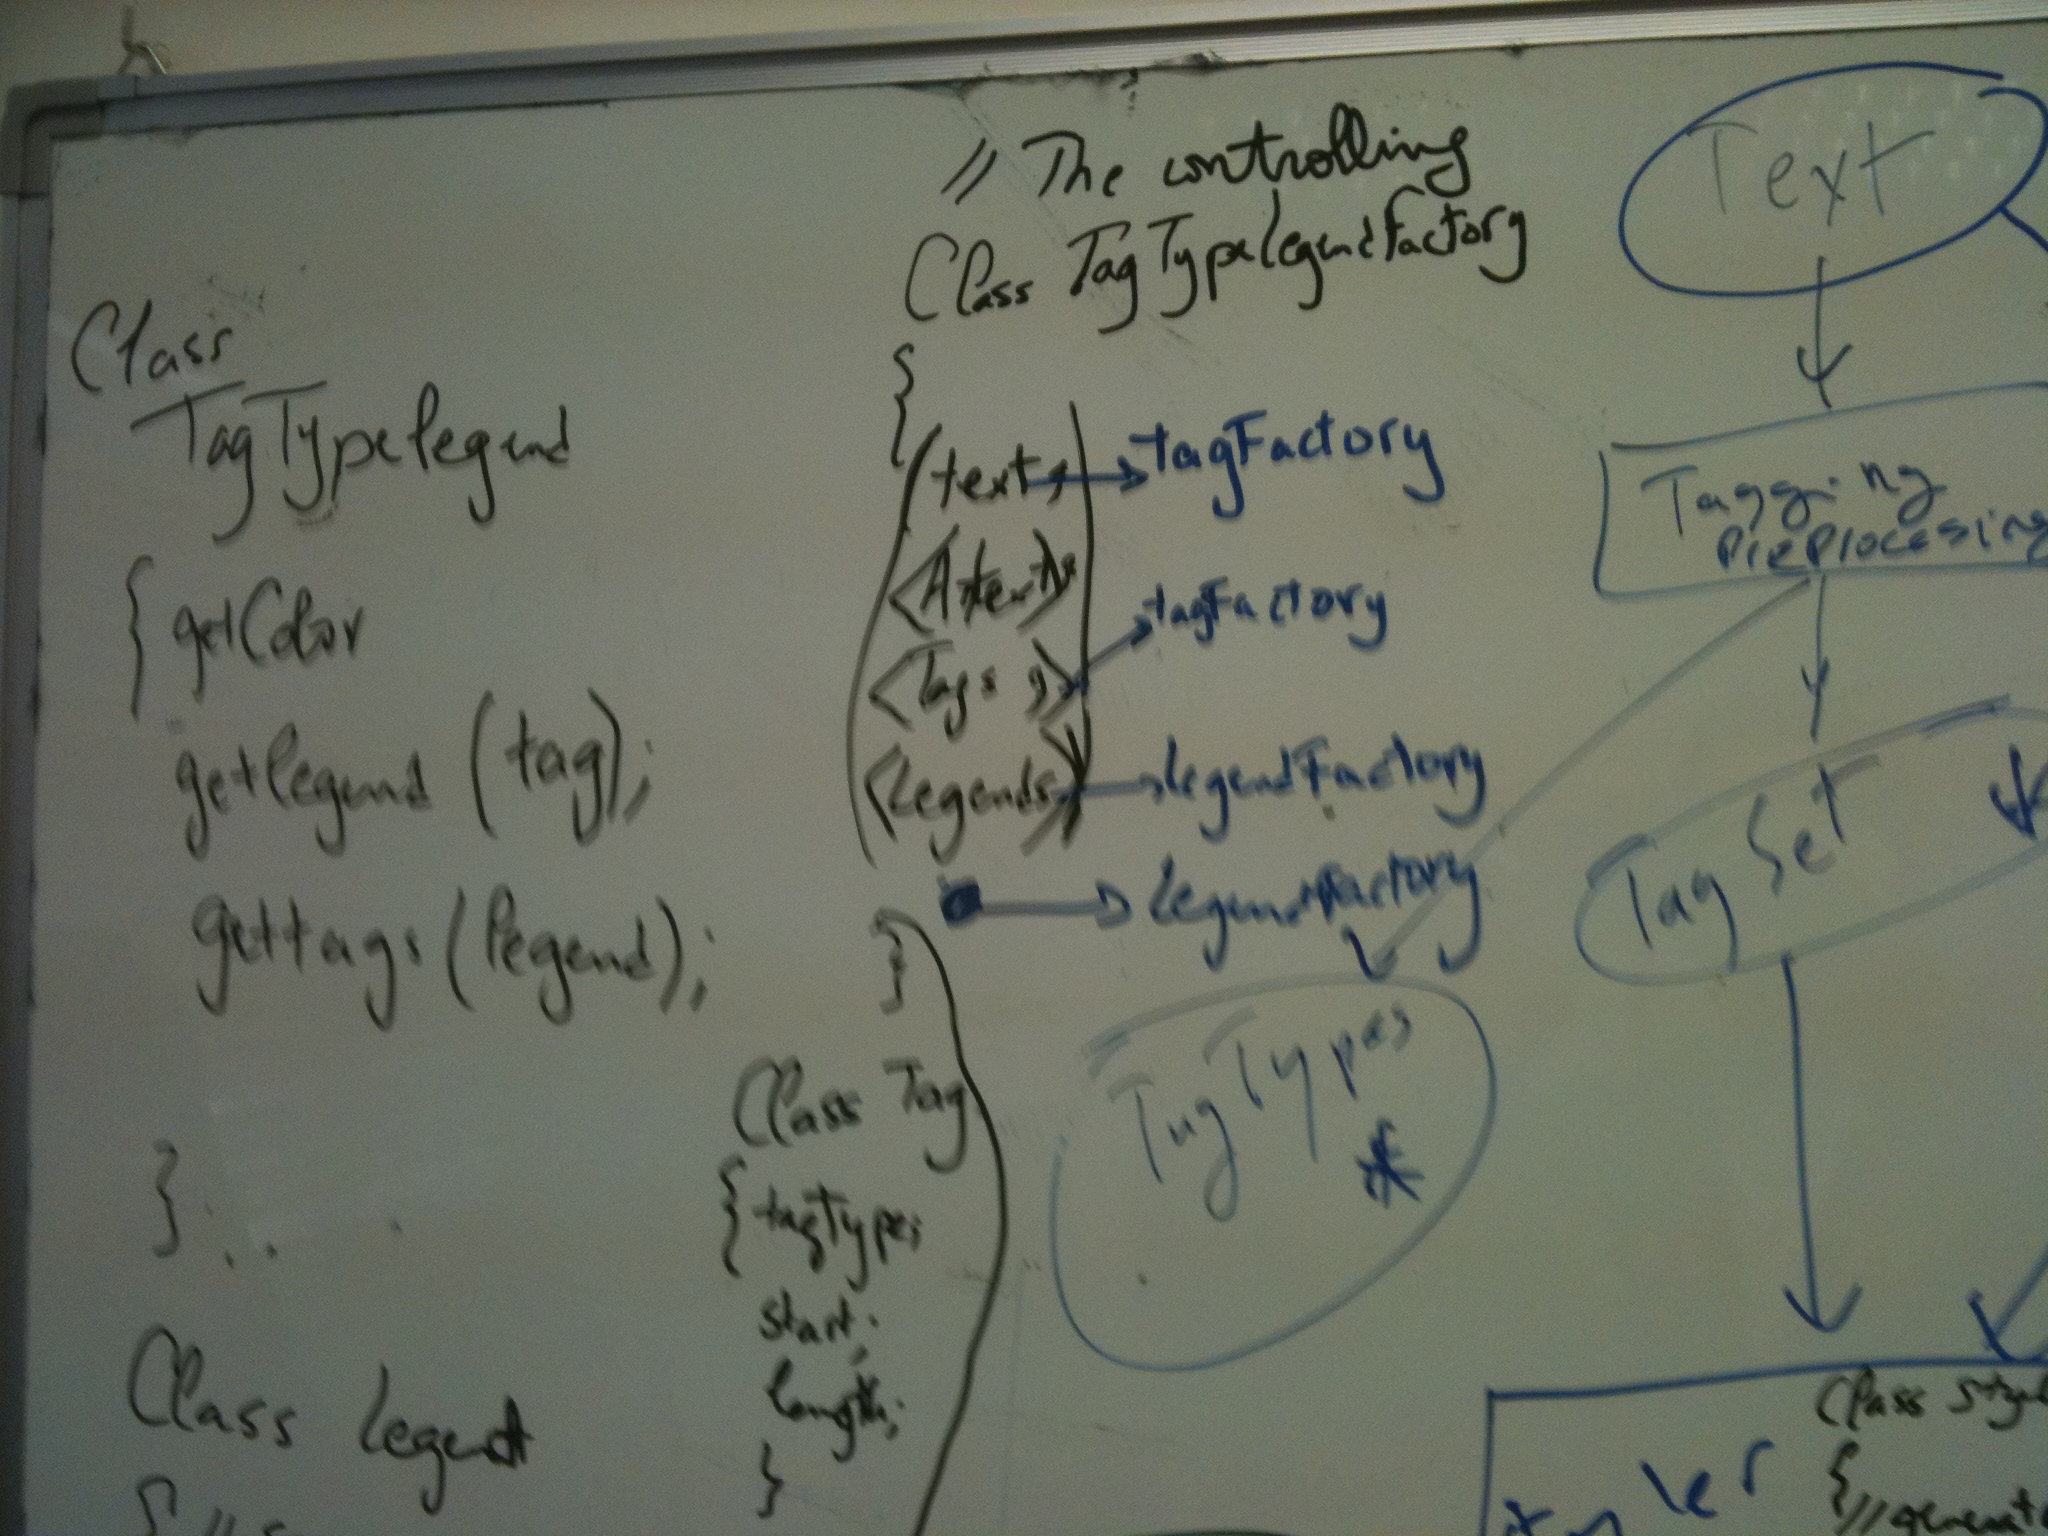 Class
TagTypelegend
{ getColor
getlegend (tag);
gettags (legend);
}
Class legend
{ //
// The controlling
Class TagTypelegendFactory
{
(text, → tagFactory
<Tags, → tagFactory
<legends> → legendFactory
→ legendFactory
}
Class Tag
{ tagType;
start;
length;
}
Text
Tagging
PreProcessing
Tag Set
TagTypes
*
Class Styl
{ // generat